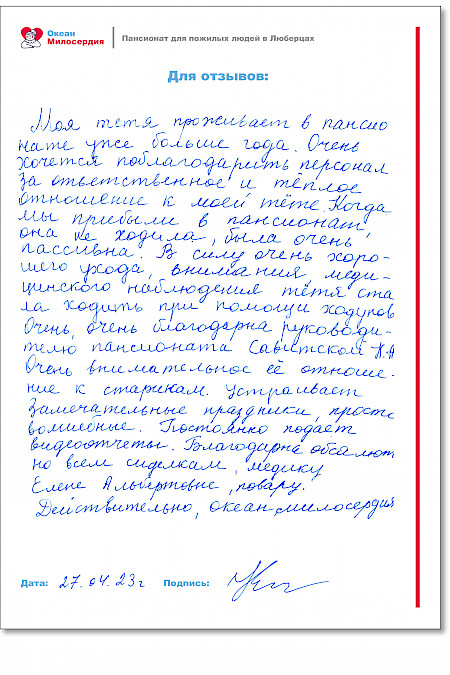 Океан
Милосердия
Пансионат для пожилых людей в Люберцах
Для отзывов:
Моя тетя проживает в пансио
нате уже больше года. Очень
хочется поблагодарить персонал
за ответственное и тёплое
отношение к моей тёте. Когда
мы прибыли в пансионат,
она не ходила, была очень
пассивна. В силу очень хоро-
шего ухода, внимания, меди-
цинского наблюдения тётя ста
ла ходить при помощи ходунов
Очень, очень благодарна руководи-
телю пансионата Савитской Н.А
Очень внимательное её отноше-
ние к старикам. Устраивает
замечательные праздники, просто
волшебные. Постоянно подаёт
видеоотчеты. Благодарна обсалют
но всем сиделкам, медику
Елене Альбертовне, повару.
Действительно, океан милосердия
Дата: 27.04.23г Подпись: